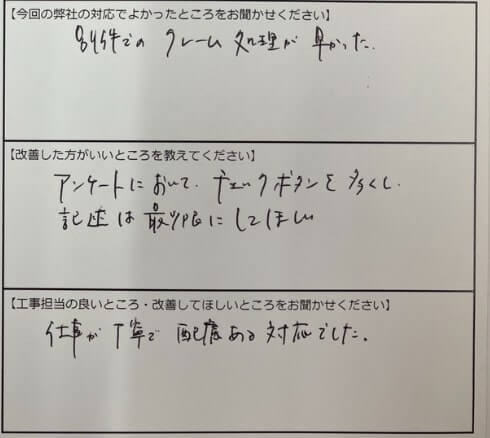 【今回の弊社の対応でよかったところをお聞かせください】
別件でのクレーム処理が早かった.
【改善した方がいいところを教えてください】
アンケートにおいて.チェックボタンを多くし.
記述は最小限にしてほしい
【工事担当の良いところ・改善してほしいところをお聞かせください】
仕事が丁寧で配慮ある対応でした。